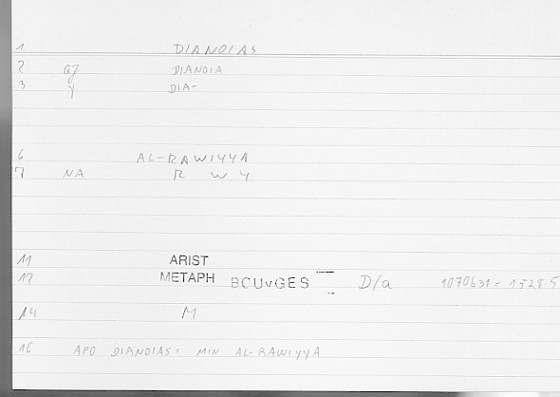 1 DIANOIAS
2 GJ DIANOIA
3 Y DIA-
6 AL-RAWIYYA
7 NA R W Y
11 ARIST
12 METAPH BOUYGES D/a
14 M
APO DIANOIAS: MIN AL-RAWIYYA